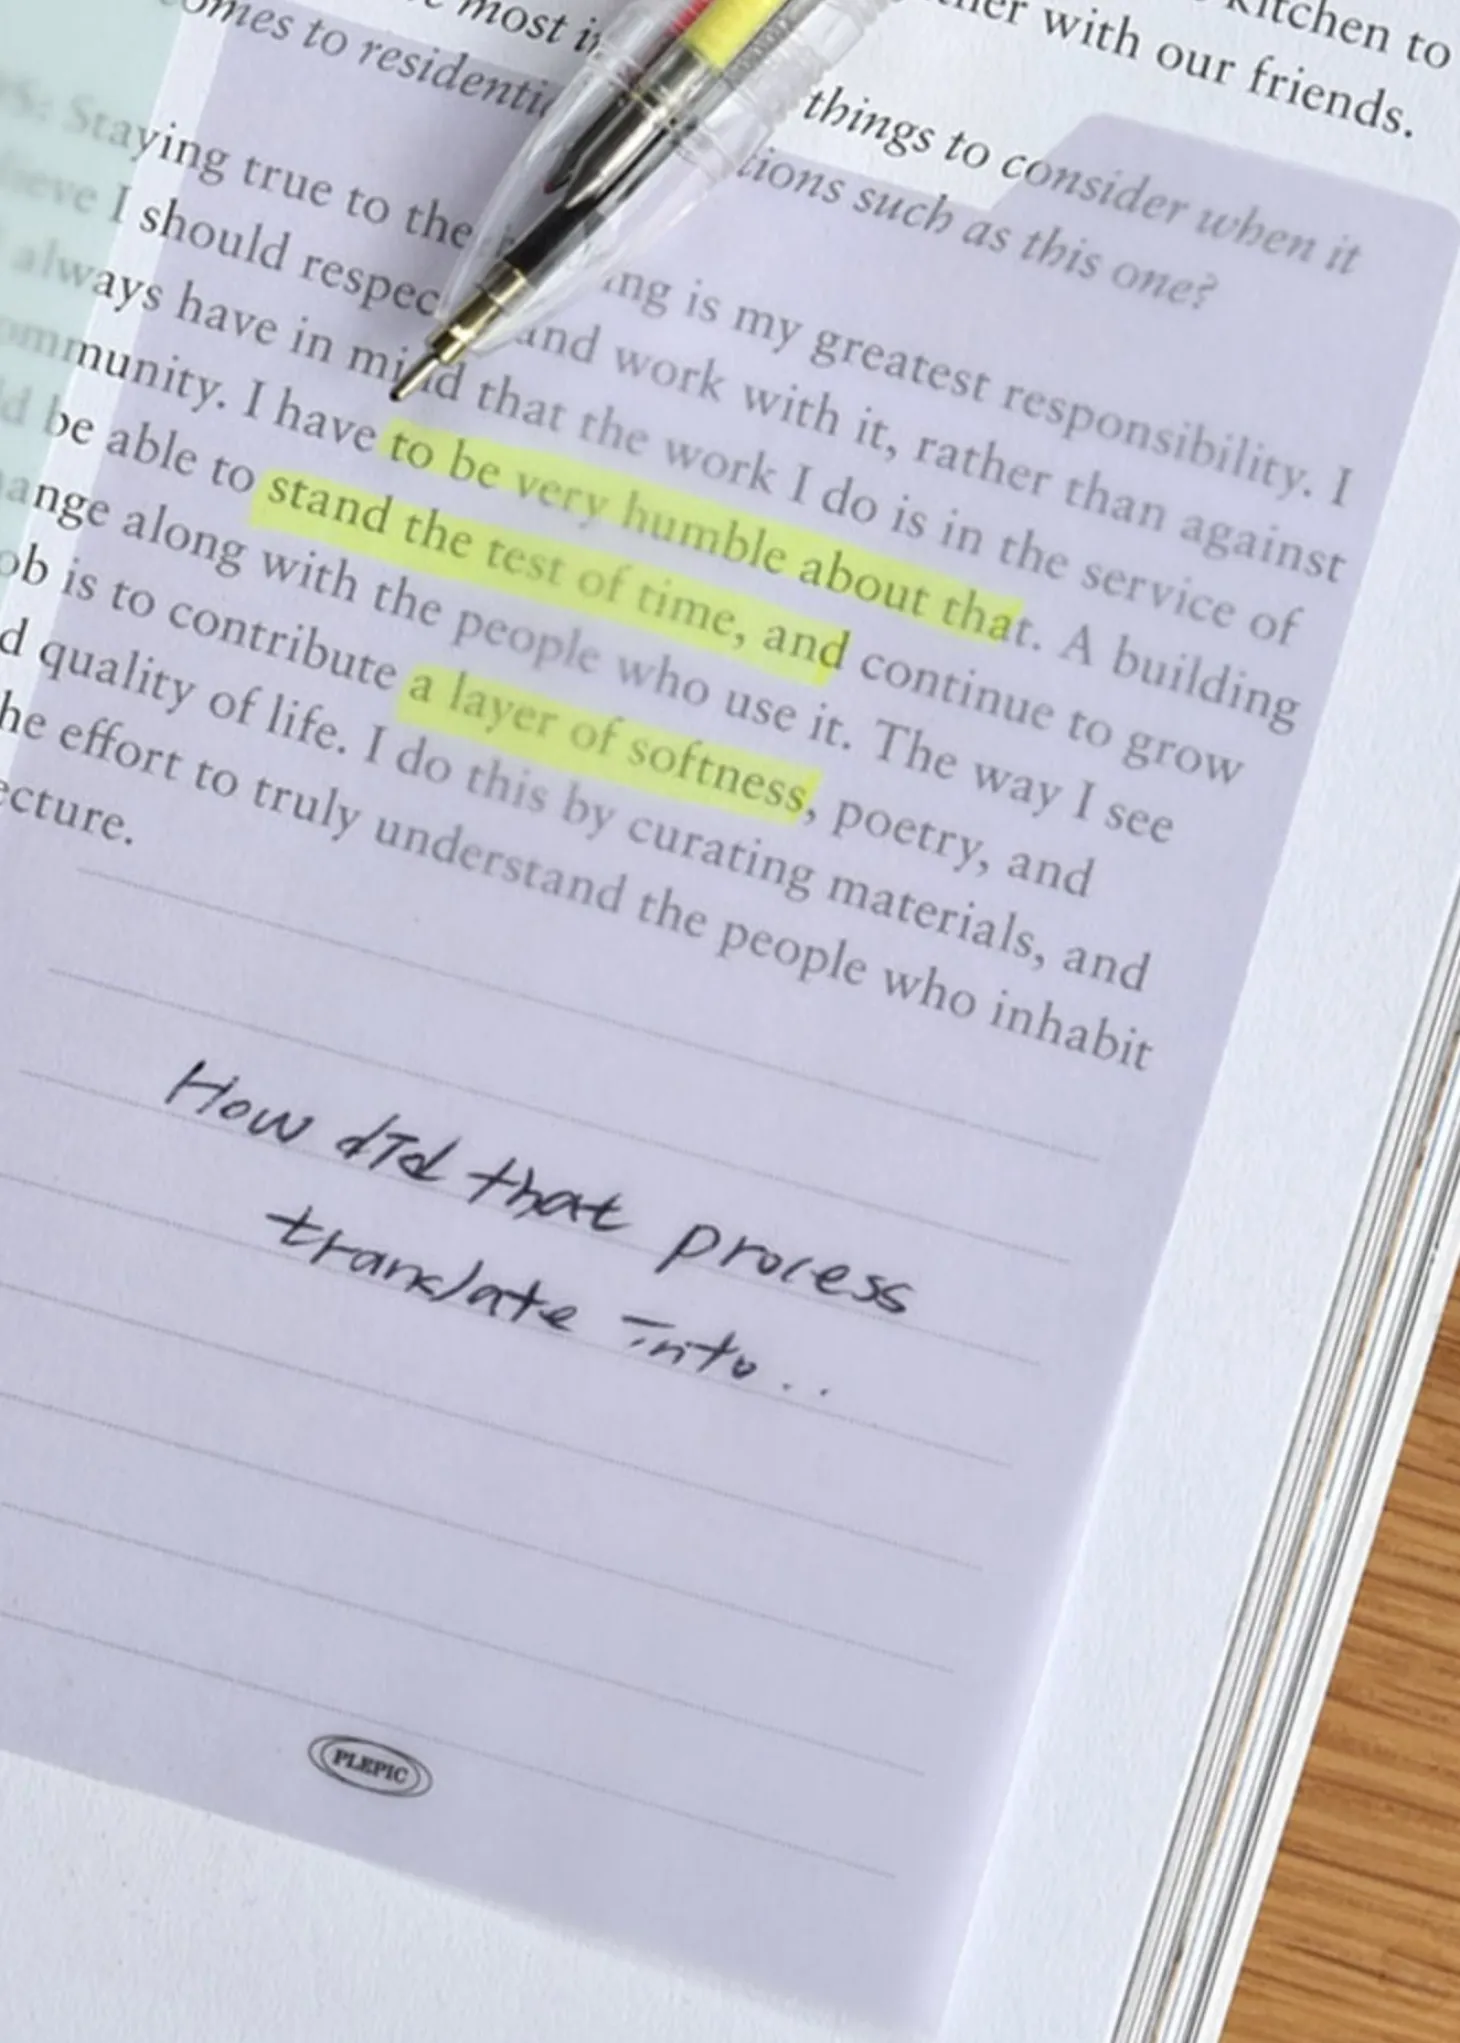 kitchen to
with our friends.
most things to consider when it
omes to residenti tions such as this one?
Staying true to the ing is my greatest responsibility. I
lieve I should respec and work with it, rather than against
always have in mind that the work I do is in the service of
ommunity. I have to be very humble about that. A building
d be able to stand the test of time, and continue to grow
ange along with the people who use it. The way I see
ob is to contribute a layer of softness, poetry, and
d quality of life. I do this by curating materials, and
he effort to truly understand the people who inhabit
ecture.
How did that process
translate into..
PLEPIC